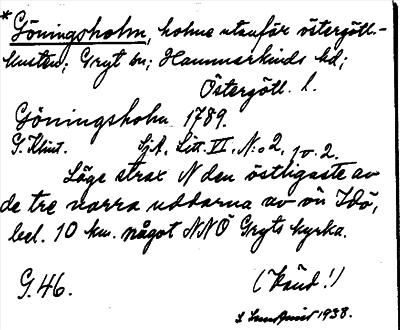 * Göningsholm, holme utanför östergötl.-
kusten; Gryt sn; Hammarkinds hd;
Östergötl. l.
Göningsholm 1789.
G. Klint. Sj.A. Litt. VI. N:o 2. 10.2.
Läge strax N den östligaste av
de tre norra uddarna av ön Idö,
bel. 10 km. något NNÖ Gryts kyrka.
G. 46. (Vänd!)
1938.